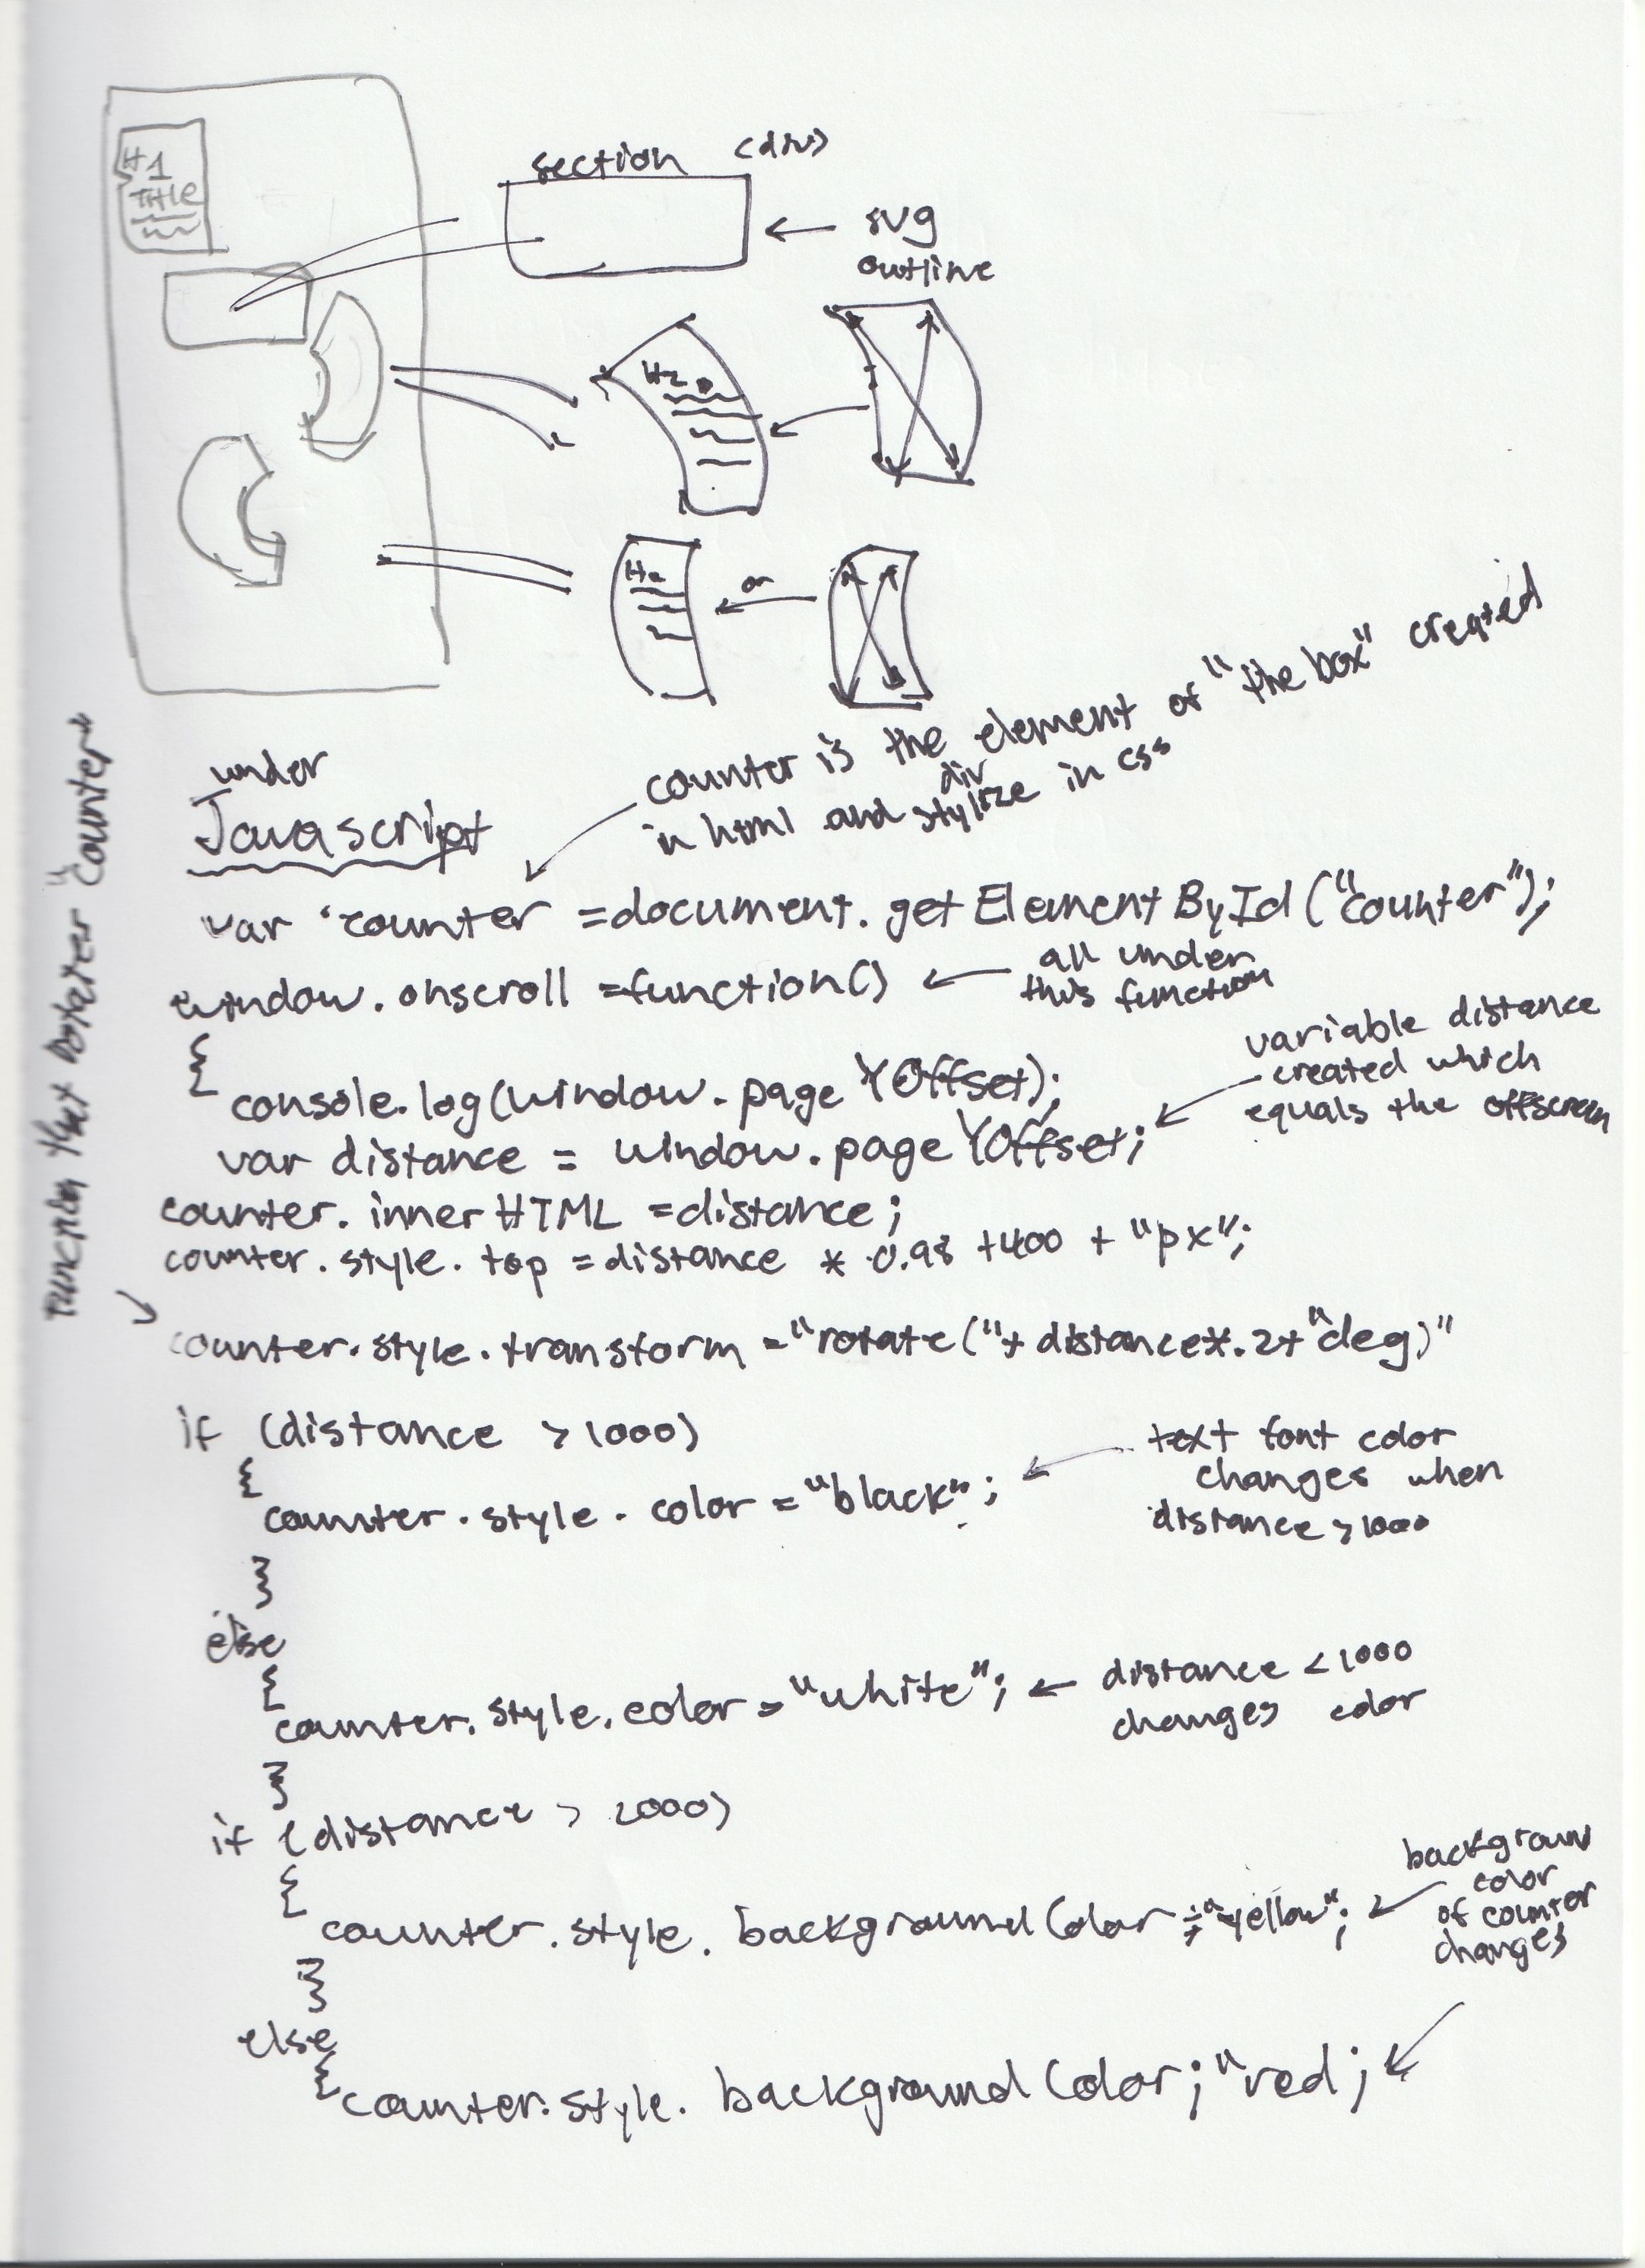 H1
Title
section (div)
svg
outline
H2
H2
or
under
Javascript
counter is the element of "the box" created
in html and stylize in css
div
var counter =document.getElementById("counter");
window.onscroll =function()
all under
this function
{
console.log(window.pageYOffset);
var distance = window.pageYOffset;
variable distance
created which
equals the offscreen
counter.innerHTML =distance;
counter.style.top =distance * 0.98 +400 + "px";
function that rotates "counter
counter.style.transform ="rotate("+ distance*.2+"deg)"
if (distance >1000)
{
counter.style.color ="black";
text font color
changes when
distance >1000
}
else
{
counter.style.color="white";
distance <1000
changes color
}
if (distance > 2000)
{
counter.style.backgroundColor ="yellow";
backgroun
color
of counter
changes
}
else
{
counter.style.backgroundColor; "red;